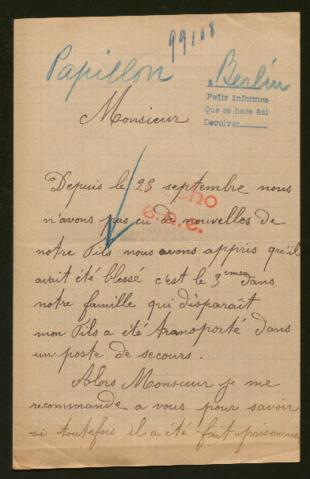 99108
Papillon
Berlín
Petir informes
Que se hace así
Devolver
Monsieur
Depuis le 25 septembre nous
n'avons pas eu de nouvelles de
notre Fils nous avons appris qu'il
avait été blessé c'est le 3emee dans
notre famille qui disparait
mon Fils a été transporté dans
un poste de secours.
Alors Monsieur je me
recommande a vous pour savoir
si toutefois il a été fait prisonnie